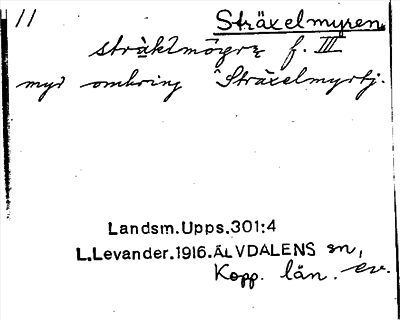 11 Sträxelmyren
sträkḷmögrɐ f. III
myr omkring Sträxelmyrtj.
Landsm.Upps.301:4
L.Levander.1916.ÄLVDALENS sn,
Kopp. län. ev.